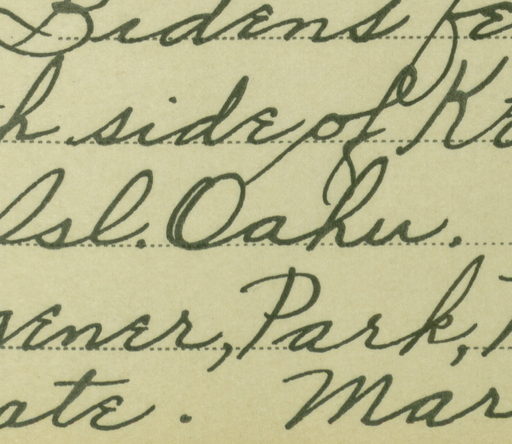 Bidens fe
h side of K
Isl. Oahu.
ener, Park,
ate. Mar